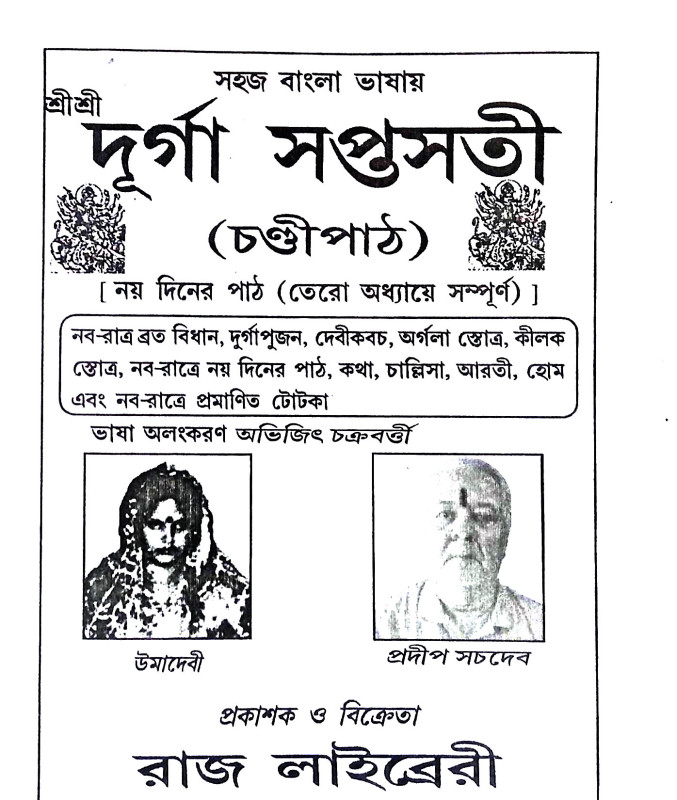 সহজ বাংলা ভাষায়
শ্রীশ্রী
দূর্গা সপ্তসতী
(চণ্ডীপাঠ)
[ নয় দিনের পাঠ (তেরো অধ্যায়ে সম্পূর্ণ) ]
নব-রাত্র ব্রত বিধান, দুর্গাপুজন, দেবীকবচ, অর্গলা স্তোত্র, কীলক
স্তোত্র, নব-রাত্রে নয় দিনের পাঠ, কথা, চাল্লিসা, আরতী, হোম
এবং নব-রাত্রে প্রমাণিত টোটকা
ভাষা অলংকরণ অভিজিৎ চক্রবর্ত্তী
উমাদেবী
প্রদীপ সচদেব
প্রকাশক ও বিক্রেতা
রাজ লাইব্রেরী